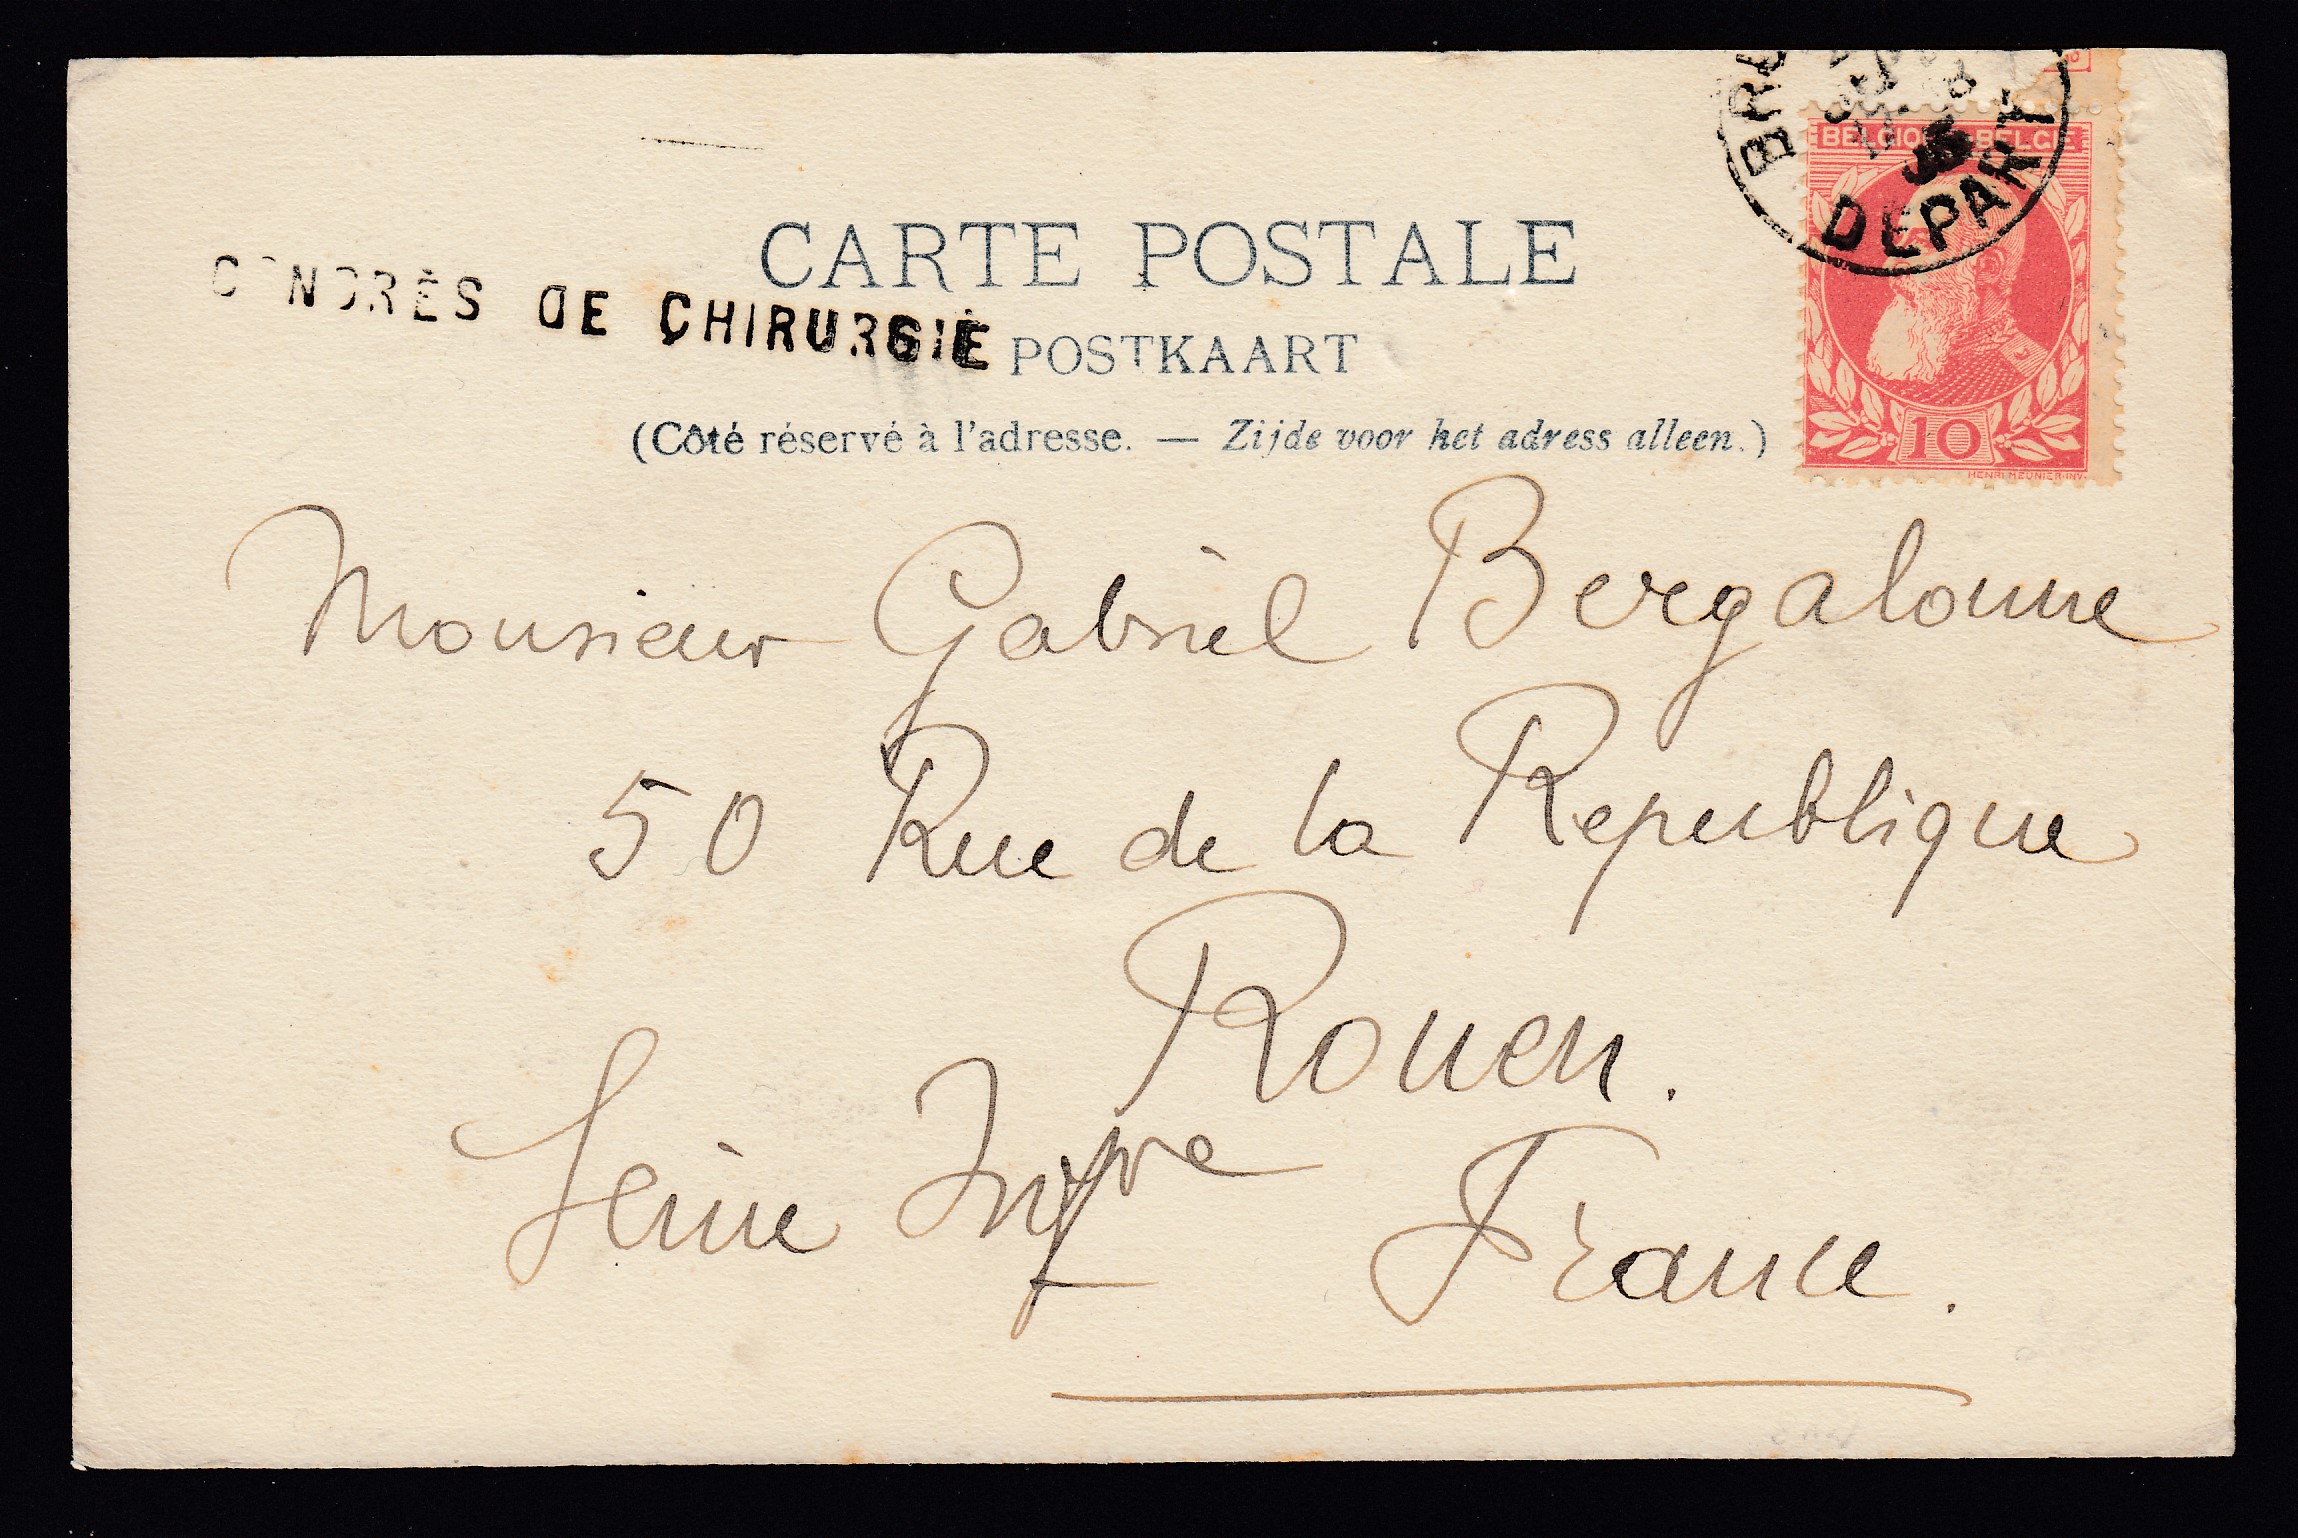 CARTE POSTALE
CONGRÈS DE CHIRURGIE
POSTKAART
(Côté réservé à l'adresse. — Zijde voor het adress alleen.)
DEPART
BELGIQUE BELGIE
10
HENRI MEUNIER·INV.
Monsieur Gabriel Bergalonne
50 Rue de la Republique
Rouen.
Seine Infre
France.